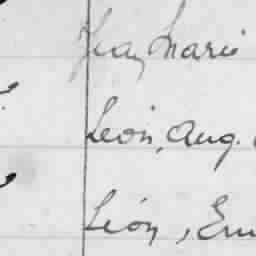 Jean Marie
Léon, Aug.
Léon, Em